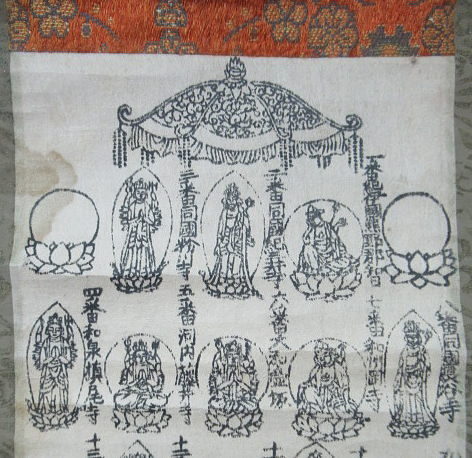 一番紀伊國熊野那智
二番同國紀三井寺
三番同國粉川寺
四番和泉槙尾寺
五番河内藤井寺
六番大和壺坂
七番和州岡寺
番同國長谷寺
十
十